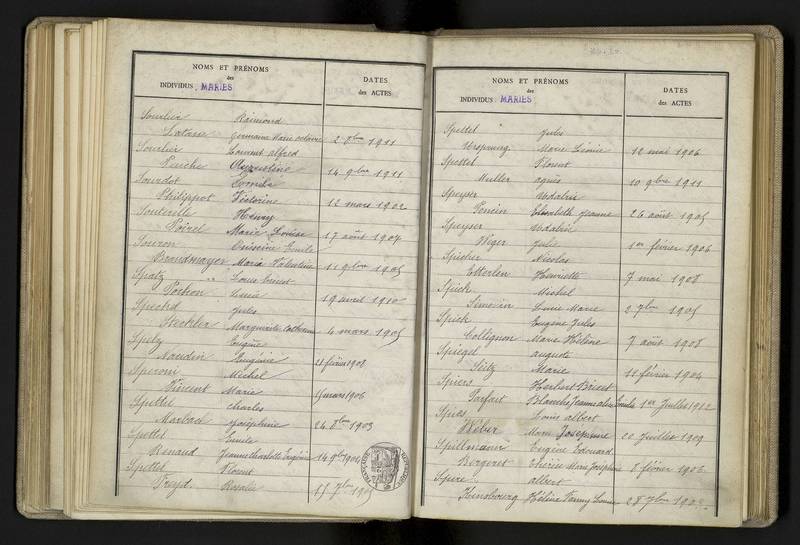 NOMS ET PRÉNOMS
des
INDIVIDUS MARIÉS
DATES
des ACTES
Sourlier Raimond
Germaine Marie 2 8bre 1911
Sourlier Laurent Alfred
Augustine 14 9bre 1911
Sourdot Emile
Philippot Victorine 12 mars 1902
Souterelle Henry
Poirel Marie Louise 17 août 1907
Souron Emile
Brandmayer Maria Valentine 11 9bre 1905
Spatz Louis
Pochon Lucie 19 avril 1910
Spechd Jules
Steckler Marguerite Catherine 4 mars 1905
Spelz Eugène
Naudin Eugénie 21 février 1908
Speroni Michel
Vincent Marie mars 1906
Spettel Charles
Marbach Joséphine 24 8bre 1903
Spettel Emile
Renaud Jeanne Charlotte Eugénie 14 9bre 1904
Spettel Florent
Freyd. Rosalie 15 7bre 1905
NOMS ET PRÉNOMS
des
INDIVIDUS MARIÉS
DATES
des ACTES
Spettel Jules
Ursprung Marie Léonie 12 mai 1906
Spettel Florent
Muller Agnès 10 9bre 1911
Speyser Udalric
Elisabeth Jeanne 26 août 1905
Speyser Udalric
Weger Julie 1er février 1906
Spicher Nicolas
Etterlen Henriette 7 mai 1908
Spick Michel
Simonin Lucie Marie 2 7bre 1905
Spick Eugène Jules
Collignon Marie Hélène 7 août 1908
Spiegel Auguste
Seitz Marie 11 février 1904
Spiers Herbert
Parfait Blanche Jeanne Emilie 1er Juillet 1912
Spies Louis Albert
Wéber Marie Joséphine 20 juillet 1909
Spillmann Eugène Edouard
Bergeret Thérèse Marie Joséphine 8 février 1906
Spire Albert
Kinsbourg Hélène Fanny Louise 28 7bre